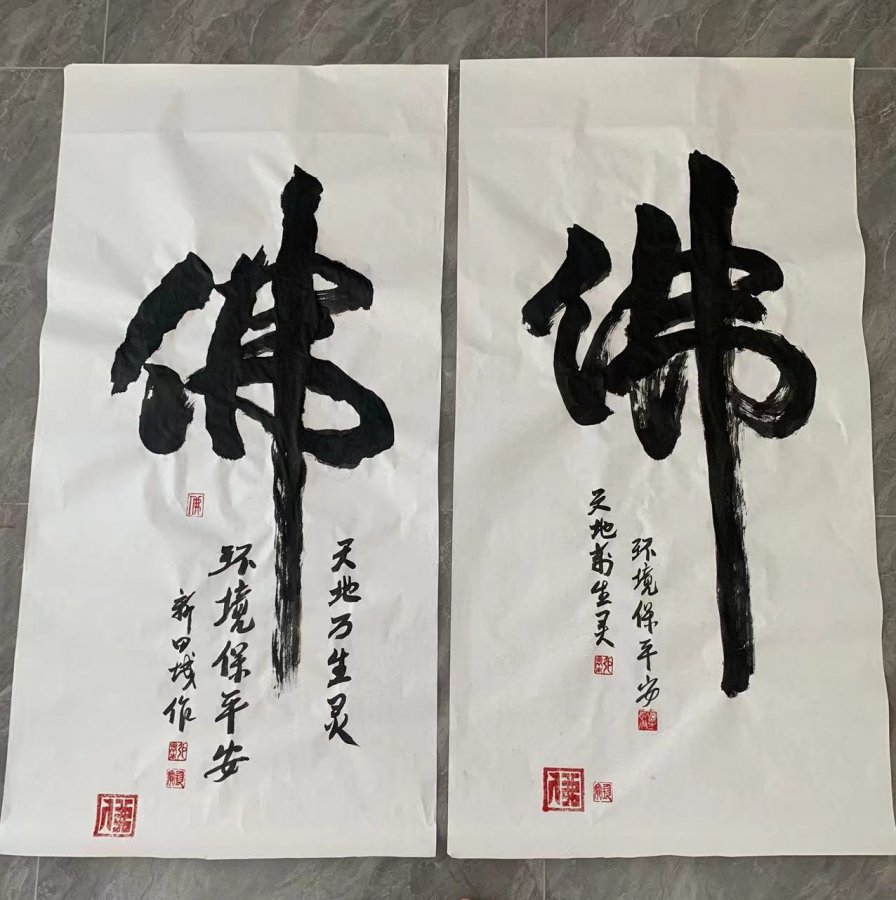 佛
天地万生灵
环境保平安
新田城作
佛
佛
佛
环境保平安
天地萬生灵
佛